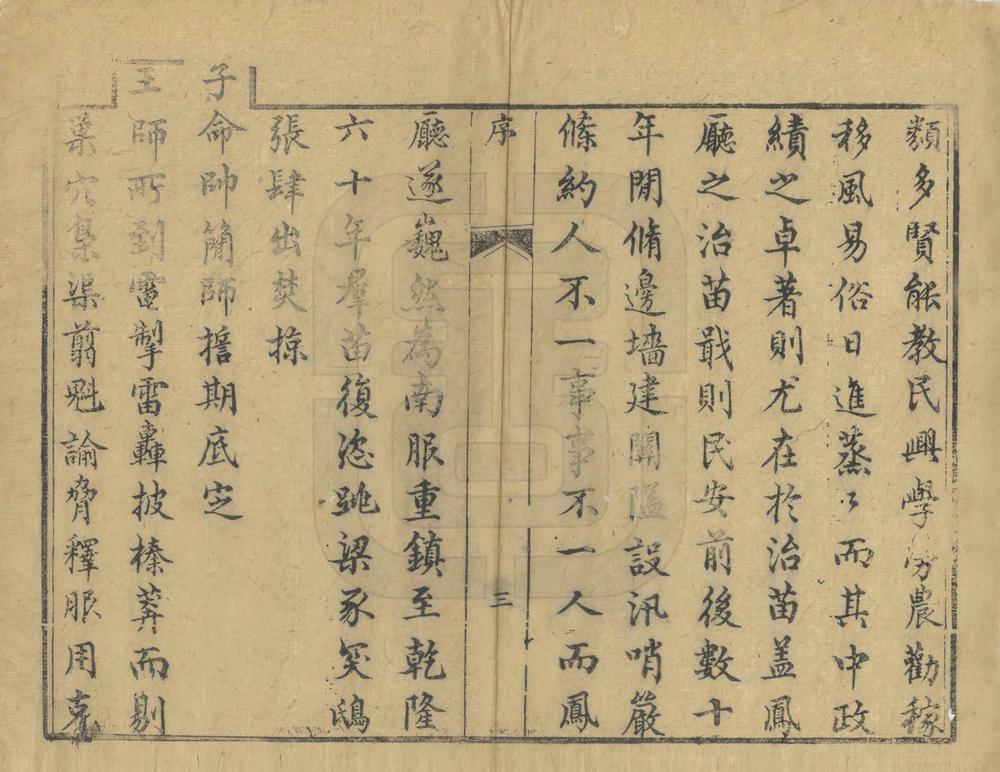 類多賢能教民興學汸農勸稼
移風易俗日進蒸〻而其中政
績之卓著則尤在於治苗盖鳳
廳之治苗戢則民安前後數十
年閒脩邊墻建關隘設汛哨嚴
條約人不一事事不一人而鳳
序
三
廳遂巍然為南服重鎮至乾隆
六十年羣苗復恣跳梁豕突鴟
張肆出焚掠
子命帥簡師搘期底定
王師所到電掣雷轟披榛莽而剔
巢穴集渠剪魁論脅釋服用克